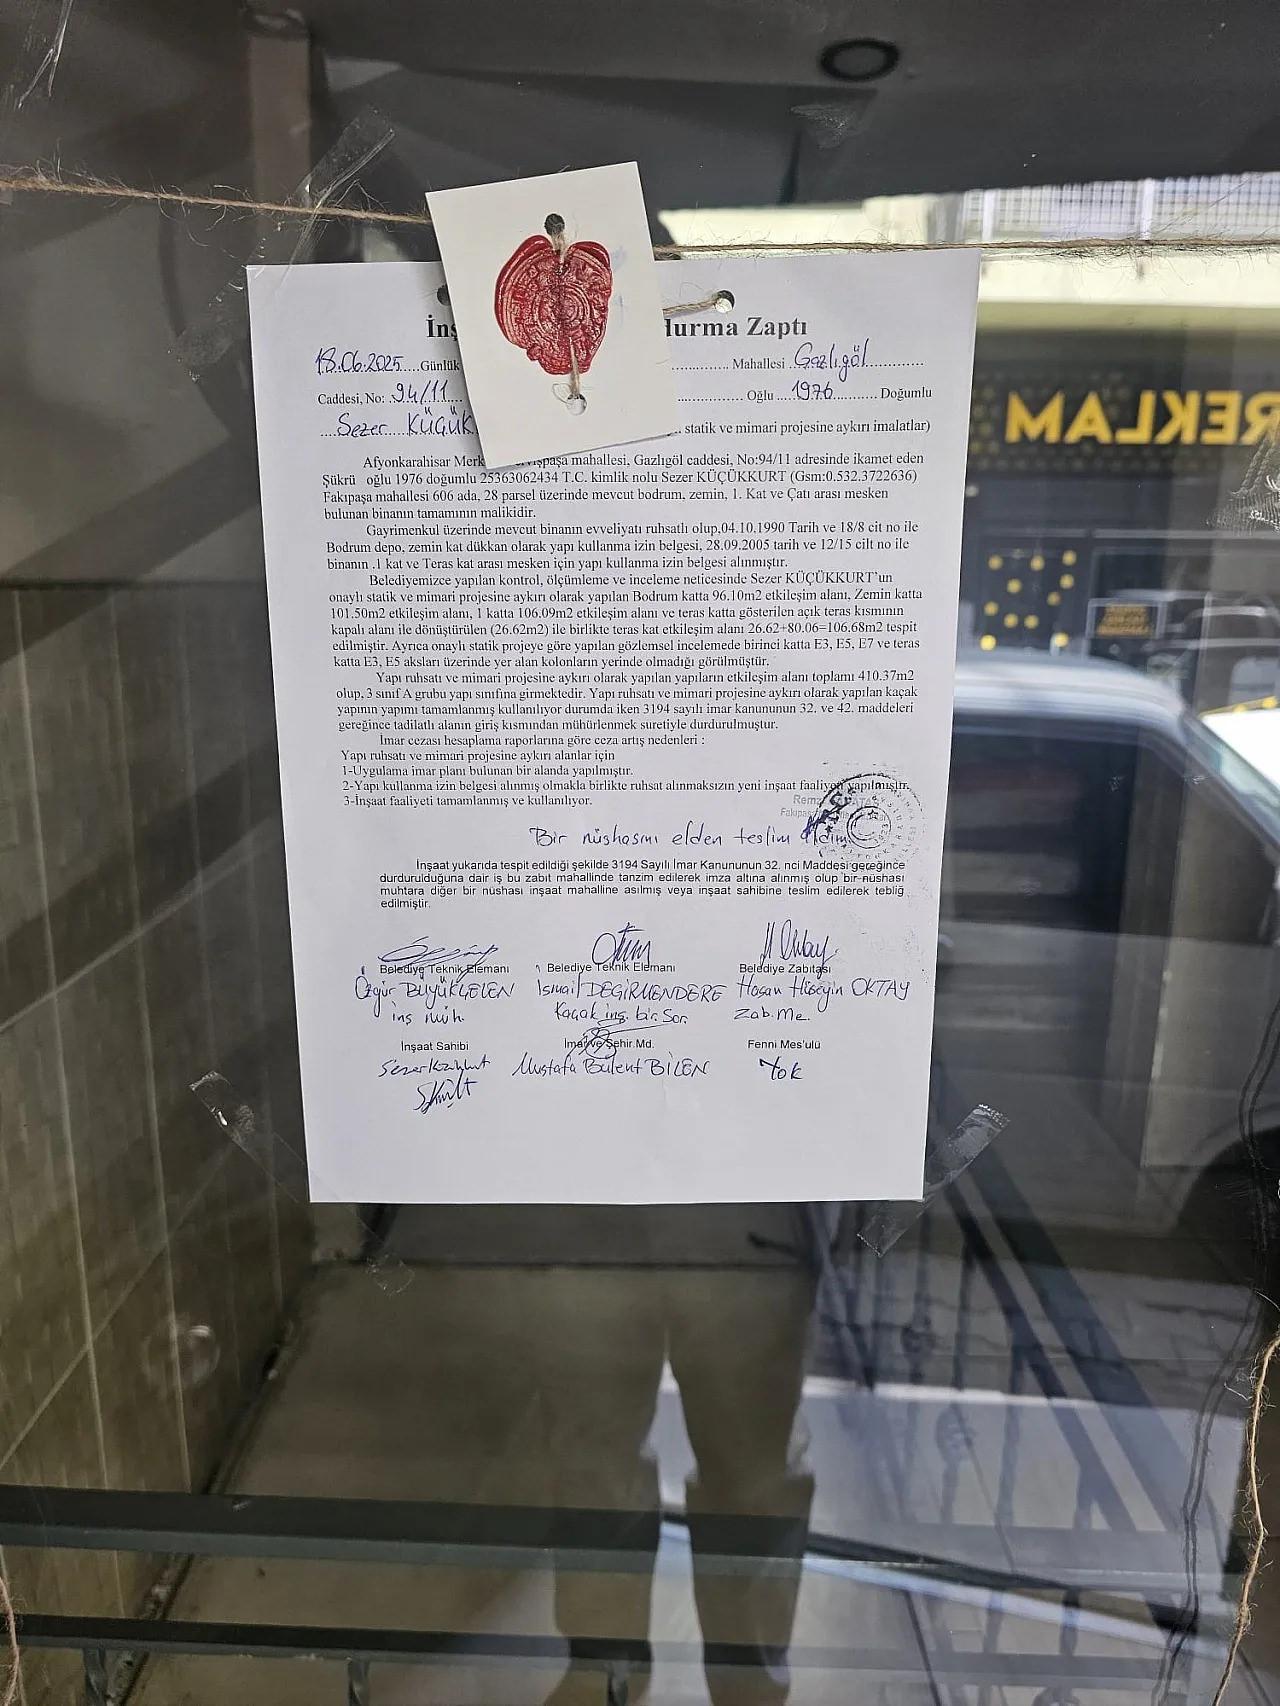 İnş durma Zaptı
18.06.2025 Günlük Mahallesi Gazlıgöl
Caddesi, No: 94/11 Oğlu 1976 Doğumlu
Sezer KÜÇÜK statik ve mimari projesine aykırı imalatlar)
Afyonkarahisar Merk mahallesi, Gazlıgöl caddesi, No:94/11 adresinde ikamet eden
Şükrü oğlu 1976 doğumlu 25363062434 T.C. kimlik nolu Sezer KÜÇÜKKURT (Gsm:0.532.3722636)
Fakıpaşa mahallesi 606 ada, 28 parsel üzerinde mevcut bodrum, zemin, 1. Kat ve Çatı arası mesken
bulunan binanın tamamının malikidir.
Gayrimenkul üzerinde mevcut binanın evveliyatı ruhsatlı olup,04.10.1990 Tarih ve 18/8 cit no ile
Bodrum depo, zemin kat dükkan olarak yapı kullanma izin belgesi, 28.09.2005 tarih ve 12/15 cilt no ile
binanın .1 kat ve Teras kat arası mesken için yapı kullanma izin belgesi alınmıştır.
Belediyemizce yapılan kontrol, ölçümleme ve inceleme neticesinde Sezer KÜÇÜKKURT'un
onaylı statik ve mimari projesine aykırı olarak yapılan Bodrum katta 96.10m2 etkileşim alanı, Zemin katta
101.50m2 etkileşim alanı, 1 katta 106.09m2 etkileşim alanı ve teras katta gösterilen açık teras kısmının
kapalı alanı ile dönüştürülen (26.62m2) ile birlikte teras kat etkileşim alanı 26.62+80.06=106.68m2 tespit
edilmiştir. Ayrıca onaylı statik projeye göre yapılan gözlemsel incelemede birinci katta E3, E5, E7 ve teras
katta E3, E5 aksları üzerinde yer alan kolonların yerinde olmadığı görülmüştür.
Yapı ruhsatı ve mimari projesine aykırı olarak yapılan yapıların etkileşim alanı toplamı 410.37m2
olup, 3 sınıf A grubu yapı sınıfına girmektedir. Yapı ruhsatı ve mimari projesine aykırı olarak yapılan kaçak
yapının yapımı tamamlanmış kullanılıyor durumda iken 3194 sayılı imar kanununun 32. ve 42. maddeleri
gereğince tadilatlı alanın giriş kısmından mühürlenmek suretiyle durdurulmuştur.
İmar cezası hesaplama raporlarına göre ceza artış nedenleri :
Yapı ruhsatı ve mimari projesine aykırı alanlar için
1-Uygulama imar planı bulunan bir alanda yapılmıştır.
2-Yapı kullanma izin belgesi alınmış olmakla birlikte ruhsat alınmaksızın yeni inşaat faaliyeti yapılmıştır.
3-İnşaat faaliyeti tamamlanmış ve kullanılıyor.
Bir nüshasını elden teslim aldım
İnşaat yukarıda tespit edildiği şekilde 3194 Sayılı İmar Kanununun 32. nci Maddesi gereğince
durdurulduğuna dair iş bu zabıt mahallinde tanzim edilerek imza altına alınmış olup bir nüshası
muhtara diğer bir nüshası inşaat mahalline asılmış veya inşaat sahibine teslim edilerek tebliğ
edilmiştir.
Belediye Teknik Elemanı Belediye Teknik Elemanı Belediye Zabıtası
Özgür BÜYÜKGELEN İsmail DEĞİRMENDERE Hasan Hüseyin OKTAY
inş müh. Kaçak inş. bir. Sor. Zab. Me.
İnşaat Sahibi İmar ve Şehir.Md. Fenni Mes'ulü
Sezer Küçükkurt Mustafa Bülent BİLEN Yok
REKLAM